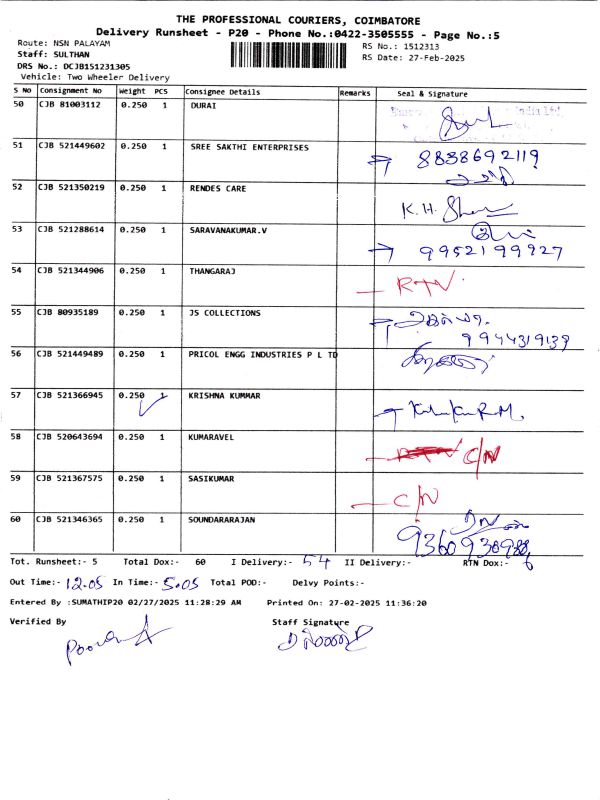 THE PROFESSIONAL COURIERS, COIMBATORE
Delivery Runsheet - P20 - Phone No.:0422-3505555 - Page No.:5
Route: NSN PALAYAM
Staff: SULTHAN
DRS No.: DCJB151231305
Vehicle: Two Wheeler Delivery
RS No.: 1512313
RS Date: 27-Feb-2025
S No Consignment No Weight PCS Consignee Details Remarks Seal & Signature
50 CJB 81003112 0.250 1 DURAI
51 CJB 521449602 0.250 1 SREE SAKTHI ENTERPRISES 8838692119
52 CJB 521350219 0.250 1 RENDES CARE K.H.
53 CJB 521288614 0.250 1 SARAVANAKUMAR.V 9952199927
54 CJB 521344906 0.250 1 THANGARAJ RTN
55 CJB 80935189 0.250 1 JS COLLECTIONS 9944319139
56 CJB 521449489 0.250 1 PRICOL ENGG INDUSTRIES P L TD
57 CJB 521366945 0.250 1 KRISHNA KUMMAR
58 CJB 520643694 0.250 1 KUMARAVEL C/N
59 CJB 521367575 0.250 1 SASIKUMAR C/N
60 CJB 521346365 0.250 1 SOUNDARARAJAN
Tot. Runsheet:- 5 Total Dox:- 60 I Delivery:- 54 II Delivery:- RTN Dox:- 6
Out Time:- 12.05 In Time:- 5.05 Total POD:- Delvy Points:-
Entered By :SUMATHIP20 02/27/2025 11:28:29 AM Printed On: 27-02-2025 11:36:20
Verified By Staff Signature